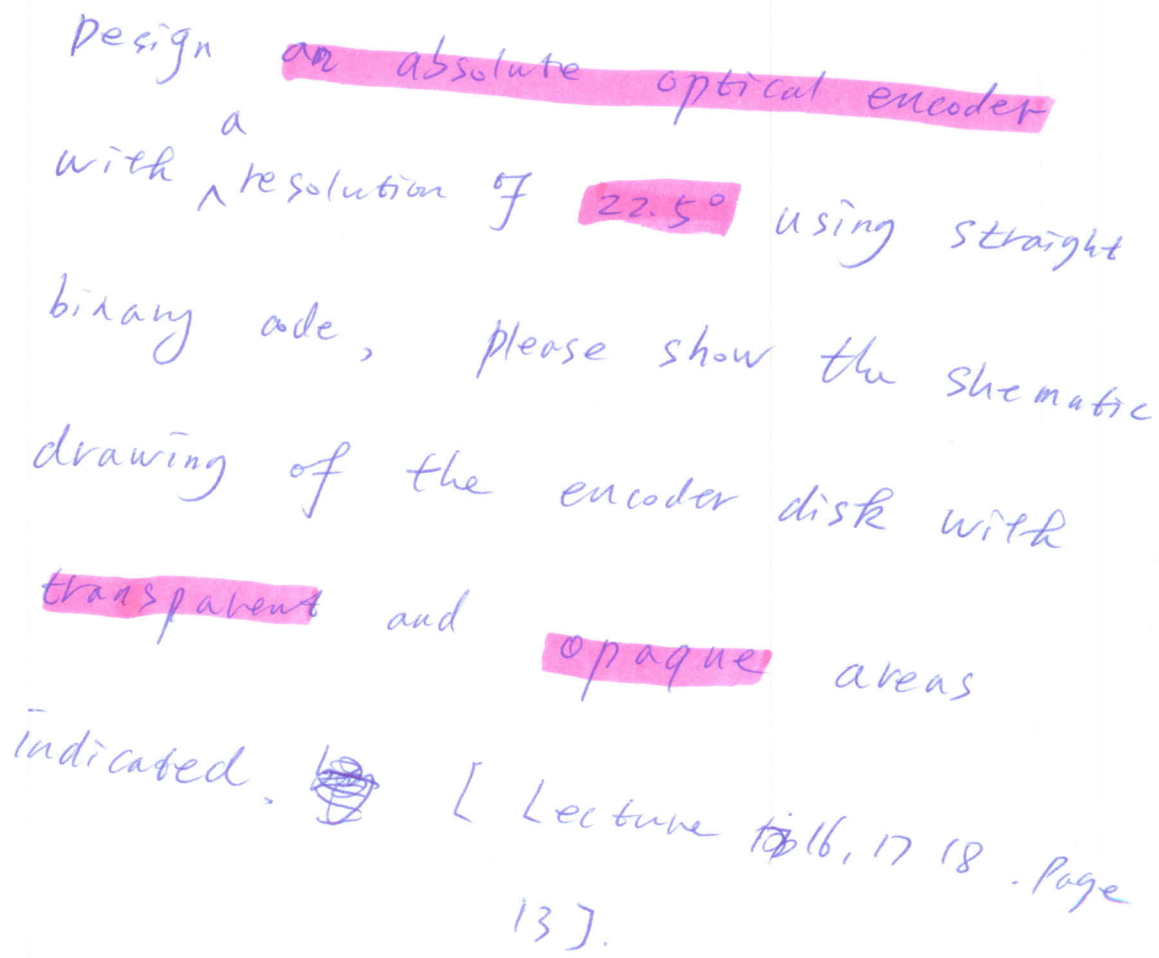 Design an absolute optical encoder
a
with ^ resolution of 22.5° using straight
binary code, please show the shematic
drawing of the encoder disk with
transparent and opaque areas
indicated. [ Lecture 16, 17 18 . Page
13 ].